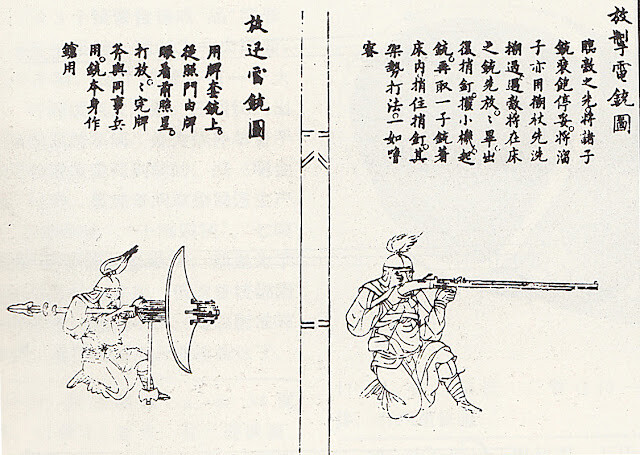 放掣電銃圖
臨敵之先將諸子
銃裝飽停妥。將溜
子亦用搠杖先洗
搠過。遇敵將在床
之銃先放。〻畢出
後捎釘攞小機起
銃。再取一子銃著
床內捎住捎釘。其
架勢打法。一如嚕
宻
放迅雷銃圖
用牌套銃上。
從照門由牌
眼看前照星。
打放〻完牌
斧與同事兵
用。銃本身作
鎗用